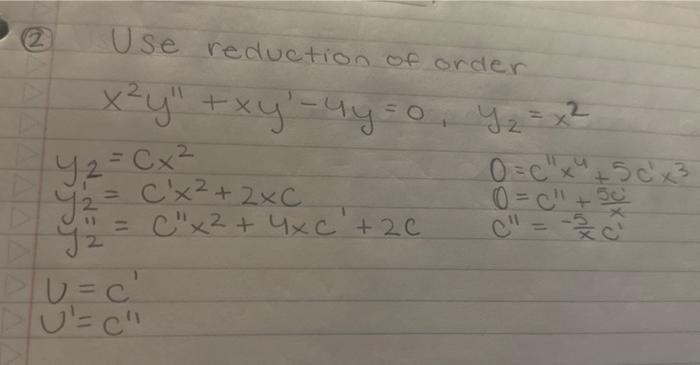 ② Use reduction of order
x²y'' + xy' - 4y = 0, y₂ = x²
y₂ = Cx²
y₂' = C'x² + 2xC
y₂'' = C''x² + 4xC' + 2C
0 = C''x⁴ + 5C'x³
0 = C'' + 5C'/x
C'' = -5/x C'
U = C'
U' = C''